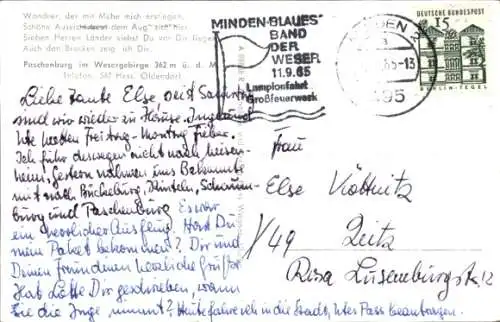 Wandrer, der mit Mühe mich erstiegen,
Schöne Aussicht dem Aug' sieh hier
Sieben Herren Länder siehst Du vor Dir liegen
Auch den Brocken zeig ich Dir.
Paschenburg im Wesergebirge 362 m ü. d. M.
Telefon. 547 Hess. Oldendorf
MINDEN-BLAUES
BAND
DER
WESER
11.9.65
Lampionfahrt
Großfeuerwerk
MINDEN
65-13
495
DEUTSCHE BUNDESPOST
15
BERLIN-TEGEL
Liebe Tante Else, seit Samstag
sind wir wieder zu Hause.
Ute hatten Freitag - Montag Fieber.
Ich fuhr deswegen nicht nach
Gestern nahmen uns Bekannte
mit nach Bückeburg, Rinteln, Schaum-
burg und Paschenburg. Es war
ein herrlicher Ausflug. Hast Du
mein Paket bekommen? Dir und
Deinen Freundinnen herzliche Grüße
Hat Lotte Dir geschrieben, wann
sie die Inge nimmt? Heute fahre ich in die Stadt, Utes Pass beantragen.
Frau
Else Köttnitz
49 Zeitz
Rosa Luxemburgstr. 12